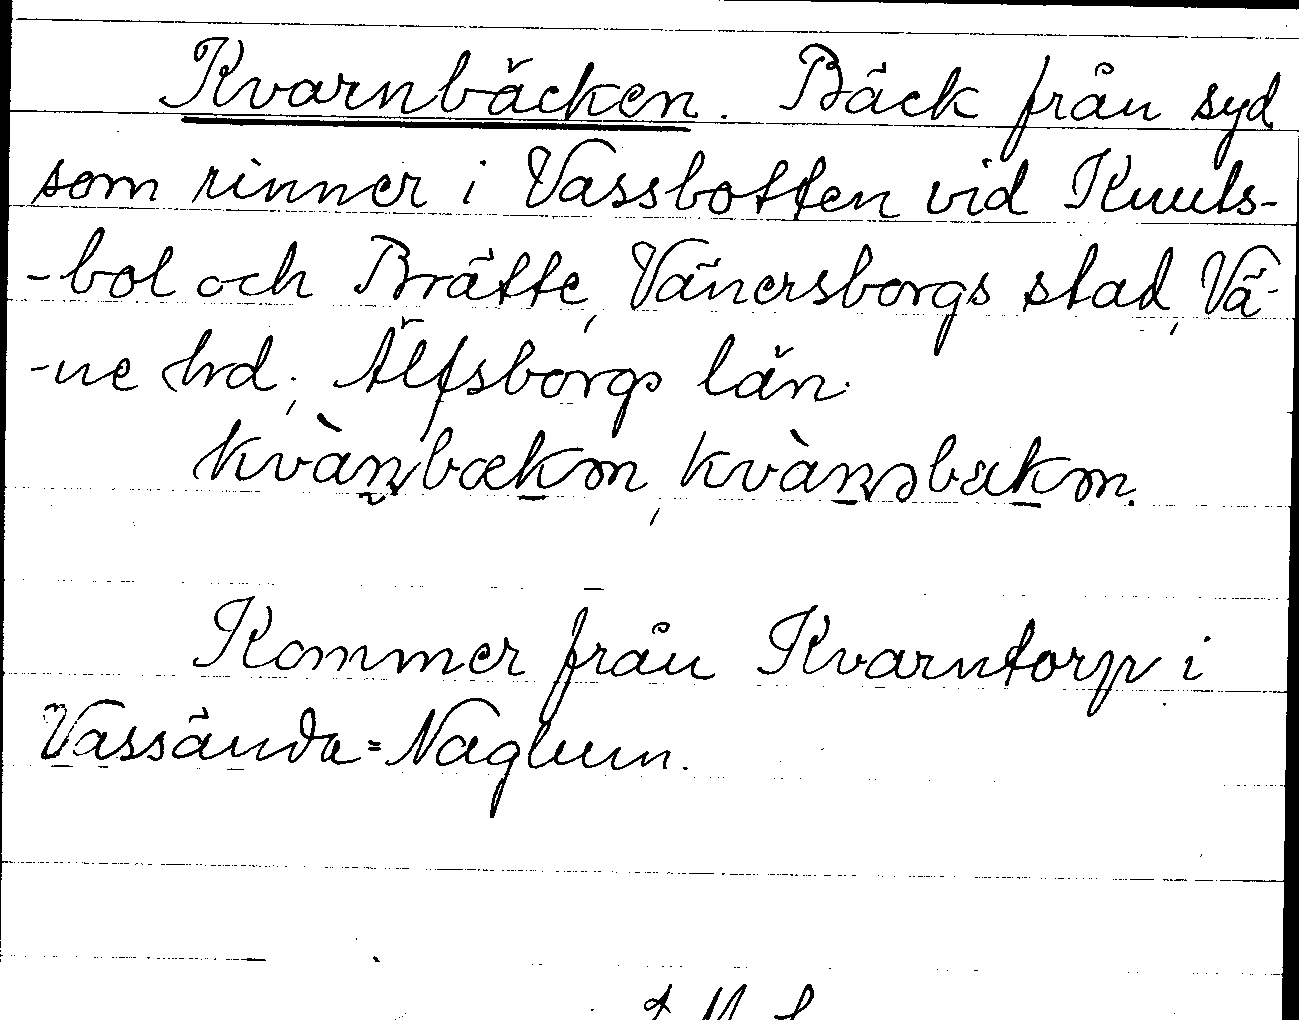 Kvarnbäcken. Bäck från syd
som rinner i Vassbotten vid Knuts-
-bol och Brätte, Vänersborgs stad, Vä-
-ne hrd, Älfsborgs län.
kvànbækm, kvànəbækm.
Kommer från Kvarntorp i
Vassända=Naglum.